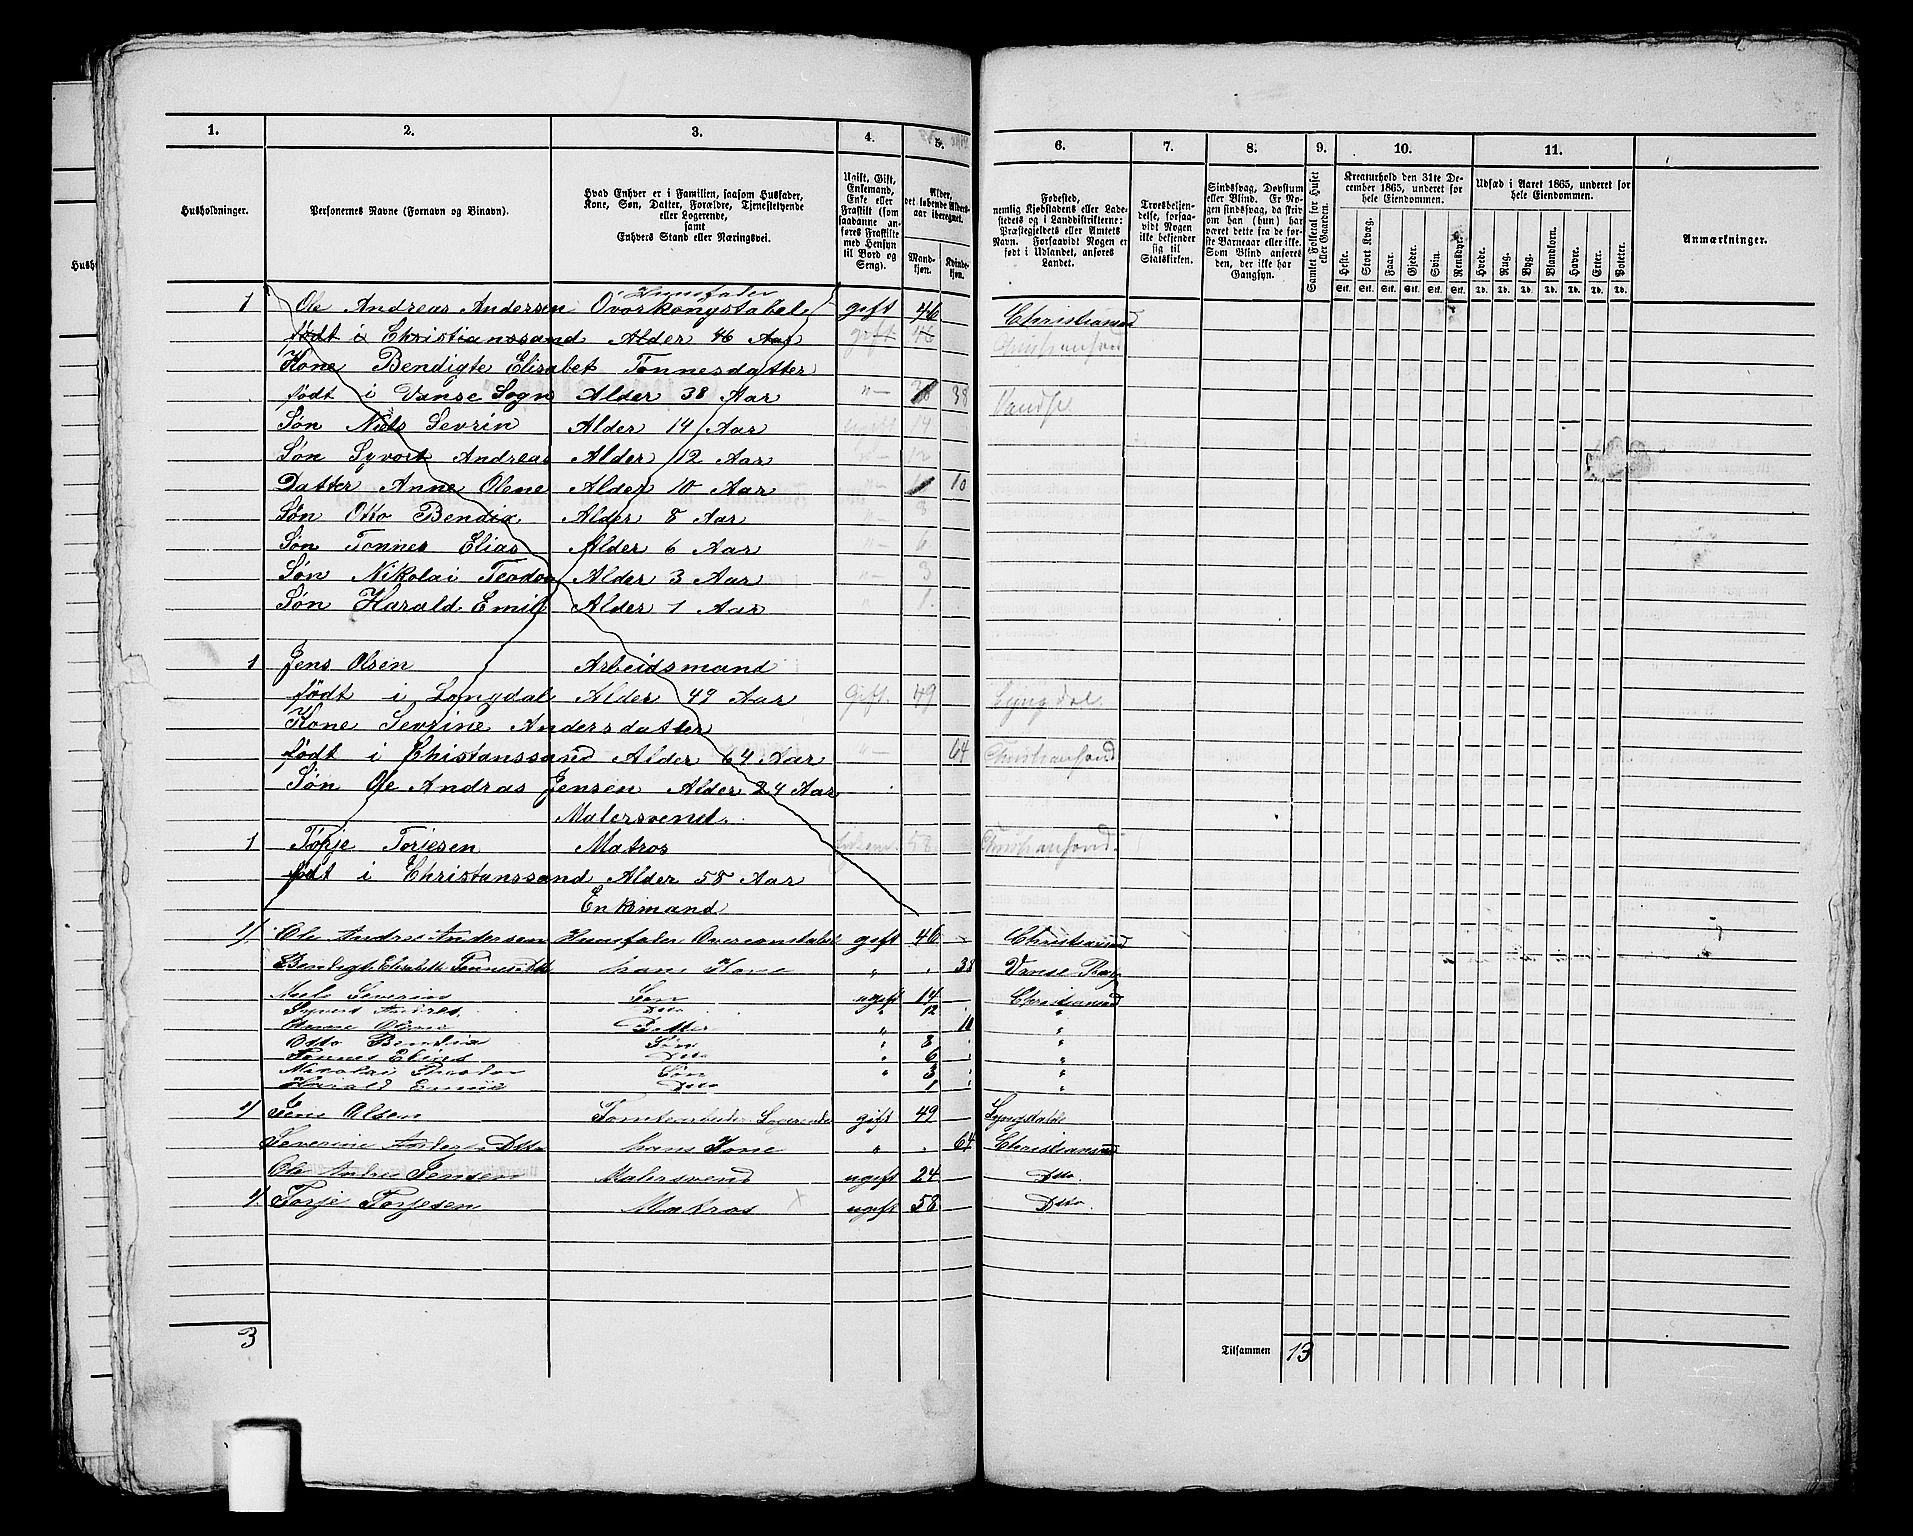 1. 2. 3. 4. 5. 6. 7. 8. 9. 10. 11.
Husholdninger.
Personernes Navne (Fornavn og Binavn).
Hvad Enhver er i Familien, saasom Husfader, Kone, Søn, Datter, Forældre, Tjenestetyende eller Logerende, samt Enhvers Stand eller Næringsvei.
Ugift, Gift, Enkemand, Enke eller Fraskilt (som saadanne anføres Fraskilte med Hensyn til Bord og Seng).
Alder, det løbende Aldersaar iberegnet.
Mandkjøn. Kvindekjøn.
Fødested, nemlig Kjøbstadens eller Ladestedets og i Landdistrikterne: Præstegjeldets eller Amtets Navn. Forsaavidt Nogen er født i Udlandet, anføres Landet.
Troesbekjendelse, forsaavidt Nogen ikke bekjender sig til Statskirken.
Sindssvag, Døvstum eller Blind. Er Nogen sindssvag, da skriv om han (hun) har været dette fra de første Barneaar eller ikke. Som Blind anføres den, der ikke har Gangsyn.
Samlet Folketal for Huset eller Gaarden.
Kreaturhold den 31te December 1865, underet for hele Eiendommen.
Heste. Stort Kvæg. Faar. Gjeder. Svin. Rensdyr.
Stk. Stk. Stk. Stk. Stk. Stk.
Udsæd i Aaret 1865, underet for hele Eiendommen.
Hvede. Rug. Byg. Blandkorn. Havre. Erter. Poteter.
Td. Td. Td. Td. Td. Td. Td.
Anmærkninger.
Huusfader
1 Ole Andreas Andersen Overkongstabel gift 46 Christiansand
født i Christianssand Alder 46 Aar gift 46 Christiansand
Kone Bendigte Elisabet Tønnesdatter
født i Vanse Sogn Alder 38 Aar "- 38 Vandse
Søn Niels Sevrin Alder 14 Aar ugift 14
Søn Syvort Andreas Alder 12 Aar "- 12
Datter Anne Olene Alder 10 Aar "- 10
Søn Otto Bendix Alder 8 Aar "- 8
Søn Tønnes Elias Alder 6 Aar "- 6
Søn Nikolai Teodor Alder 3 Aar "- 3
Søn Harald Emil Alder 1 Aar " 1
1 Jens Olsen Arbeidsmand
født i Longdal Alder 49 Aar Gift. 49 Lyngdal
Kone Sevrine Andersdatter
født i Christanssand Alder 64 Aar "- 64 Christiansand
Søn Ole Andras Jensen Alder 24 Aar
Malersvend.
1 Torje Torjesen Matros Enkem. 58 Christiansand.
født i Christanssand Alder 58 Aar
Enkemand
1/ Ole Andres Andersen Huusfader Overconstabel gift 46 - Christiansand
Bendigte Elisabeth Tønnesdtt hans Kone " . 38 Vanse Præg
Niels Severin Søn ugift 14 Christiansand
Syvert Andres. Dtto " 12 "
Anne Olene Datter " 10 "
Otto Bendix Søn " 8 "
Tønnes Elias Dtto " 6 "
Nikolai Theodor Søn " 3 "
Harald Emil Dtto 1 "
1/ Jens Olsen Tomtearbeider Logerende gift 49 Lyngdal
Severine Andersdtto hans Kone " . 64 Christiansand
Ole Andres Jensen Malersvend ugift 24 Dtto.
1/. Torje Torjesen Matros × ugift 58 Dtto.
3 Tilsammen 13